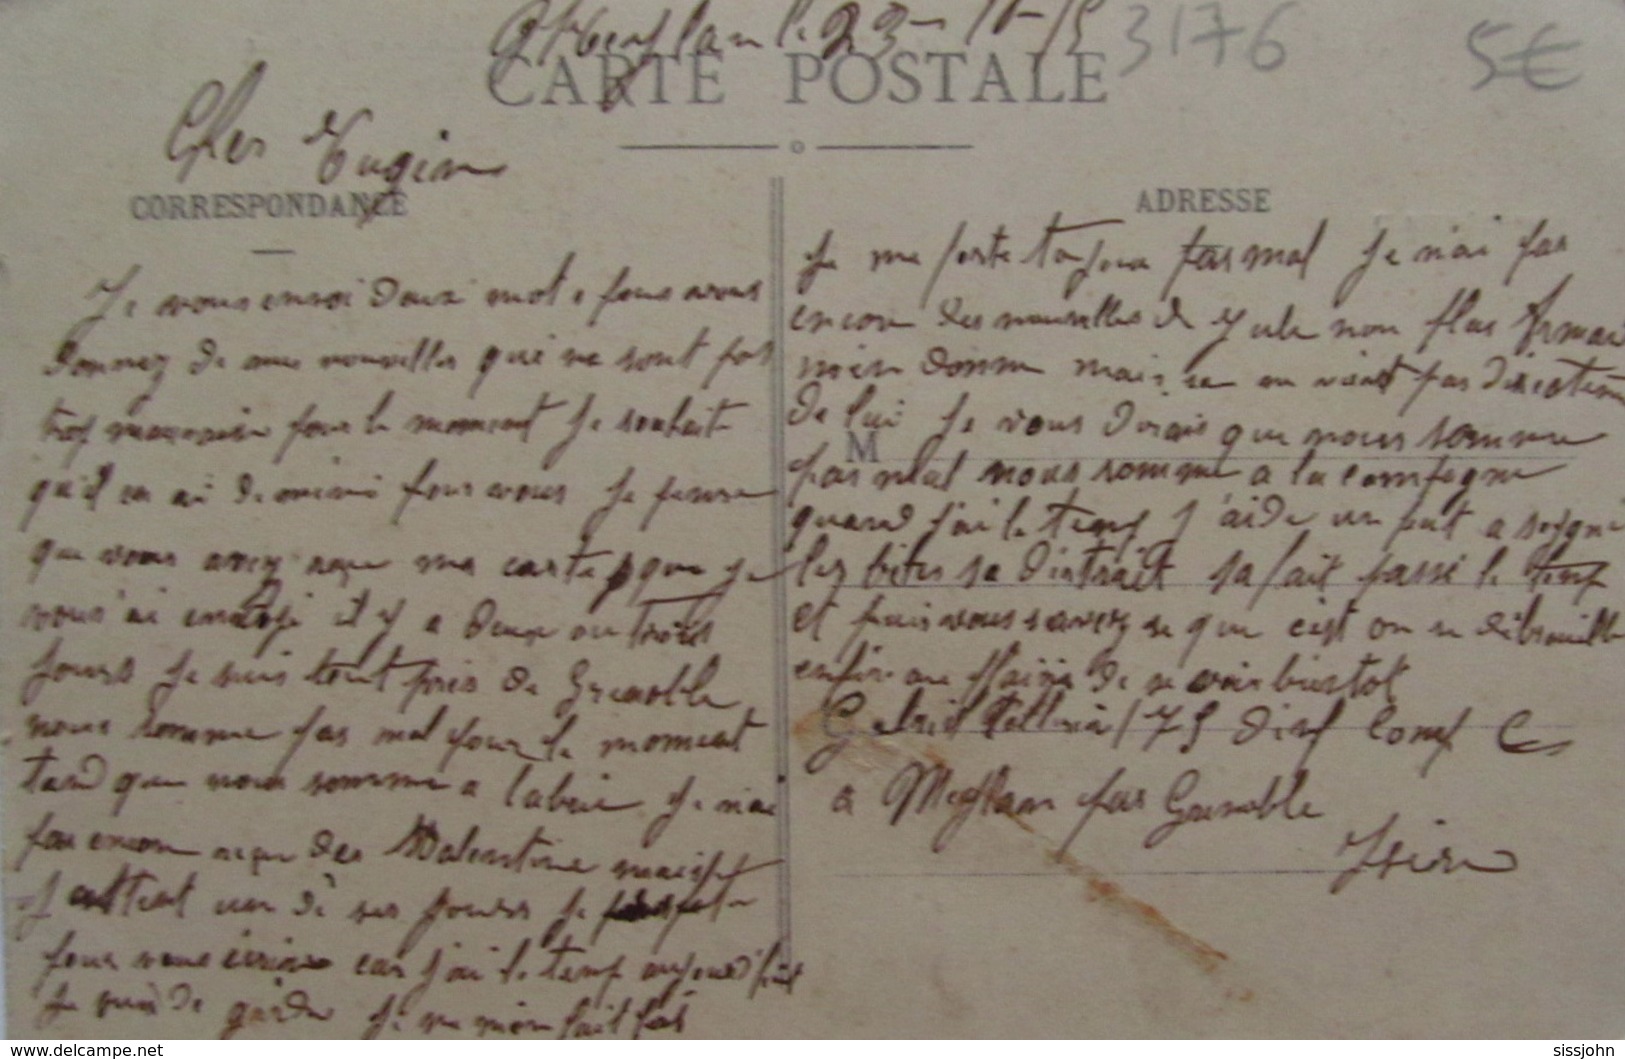 Meylan le 23 - 11 - 15
3176
5€
CARTE POSTALE
Cher Eugine
CORRESPONDANCE
ADRESSE
Je vous envoi deux mots pour vous
donnez de mes nouvelles qui ne sont pas
trop mauvaise pour le moment Je souhaite
qu'il en ai de même pour vous Je pense
que vous avez reçu ma carte que je
vous ai envoyé il y a deux ou trois
jours Je suis tout près de Grenoble
nous somme pas mal pour le moment
tand que nous somme a labrie Je n'ai
pas encore reçu des Valentine mais
J'attent un de ses jours Je profite
pour vous écrire car j'ai le temp aujourd'hui
Je suis de garde Je ne m'en fait pas
Je me porte toujour pas mal Je n'ai pas
encore des nouvelles de Jule non plus Arman
m'en donne mais sa ne vient pas directem
de lui Je vous dirais que nous somme
M
pas mal nous somme a la compagne
quand j'ai le temp J'aide un peut a soigné
les bêtes sa distrait sa fait passé le temp
et puis vous savez se que c'est on se débrouille
enfin au plaisir de se voir bientot
Gabriel 75 Comp
a Meylan par Grenoble
Isère
www.delcampe.net
sissjohn